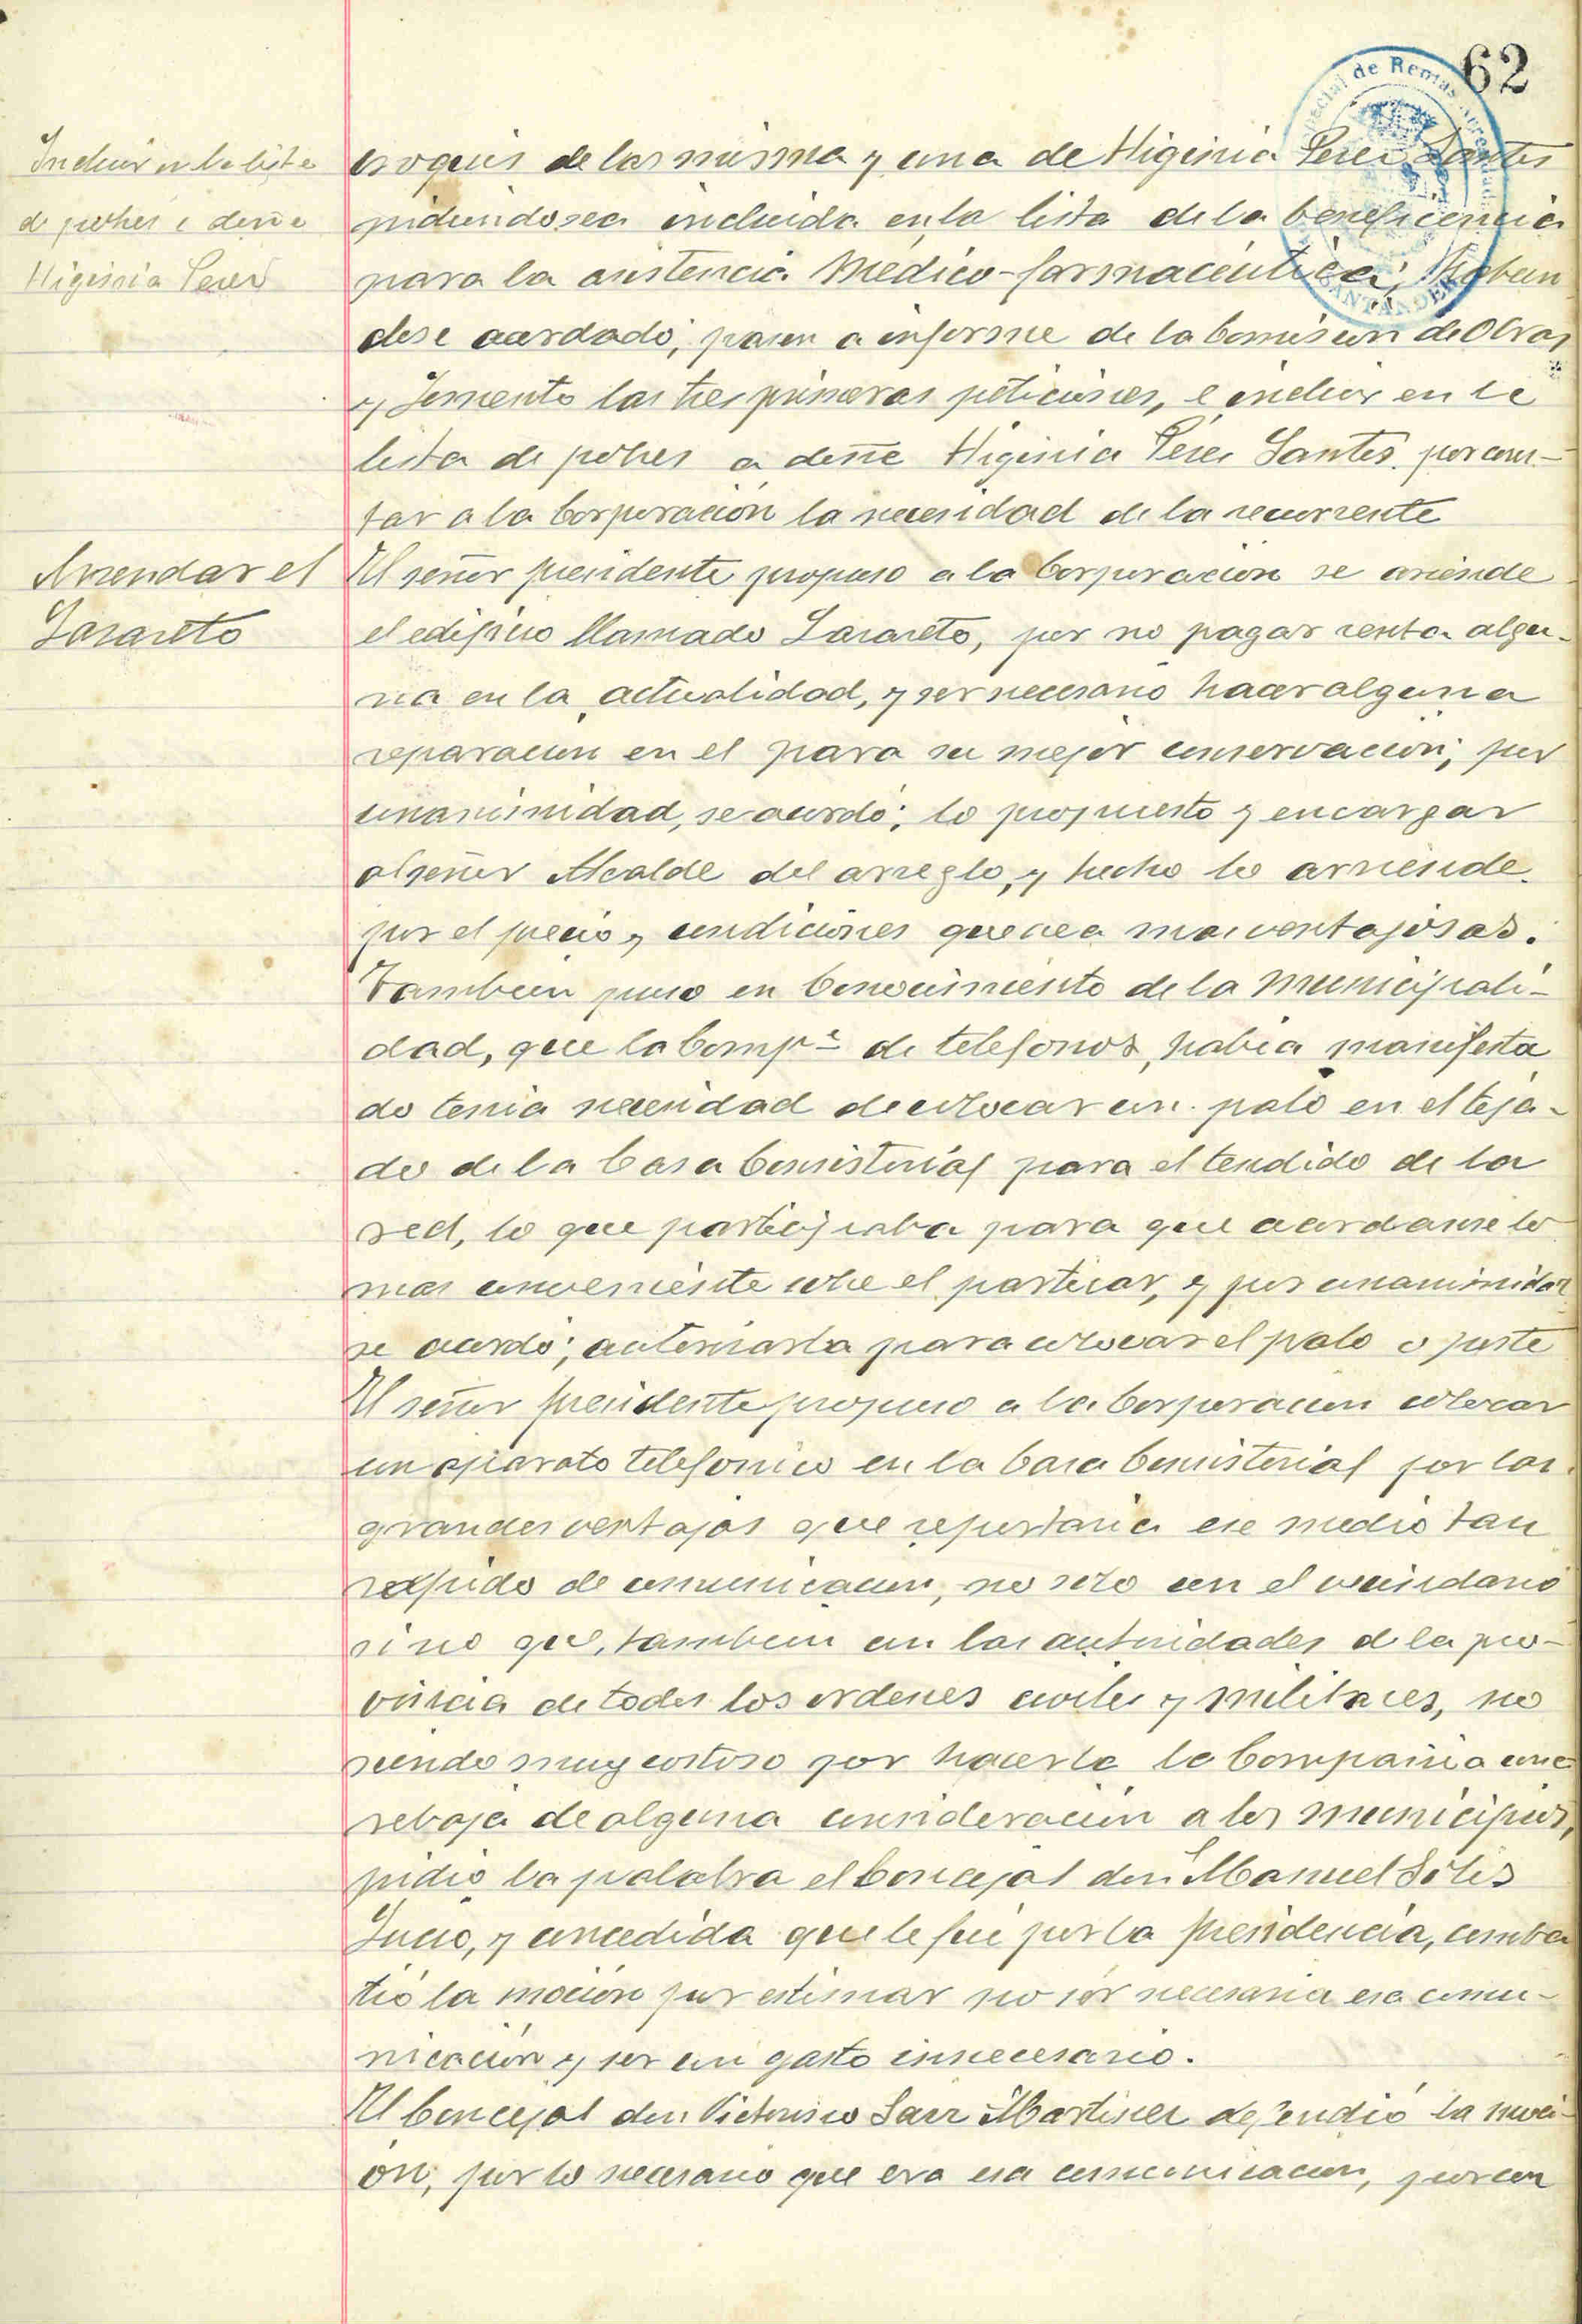 62
Especial de Rentas Arrendadas
SANTANDER
Incluir en la lista
de pobres a doña
Higinia Perez
croquis de las misma y una de Higinia Perez Santos
pidiendo sea incluida en la lista de la beneficencia
para la asistencia Medico-farmaceutica; habien
dose acordado; pasen a informe de la Comision de Obras
y Fomento las tres primeras peticiones, e incluir en la
lista de pobres a doña Higinia Pérez Santos. por cons-
tar a la Corporación la necesidad de la recurrente
Arrendar el
Lazareto
El señor presidente propuso a la Corporacion se ariende
el edificio llamado Lazareto, por no pagar renta algu-
na en la actualidad, y ser necesario hacer alguna
reparacion en el para su mejor conservación; por
unanimidad, se acordó; lo propuesto y encargar
al señor Alcalde del arreglo, y hecho lo arriende
por el precio y condiciones que vea mas ventajosas.
Tambien puso en Conocimiento de la Municipali-
dad, que la Compª de telefonos, habia manifesta
do tenia necesidad de colocar un palo en el teja-
do de la Casa Consistorial para el tendido de la
red, lo que participaba para que acordase lo
mas conveniente sobre el particar, y por unanimidad
se acordó; autorizarla para colocar el palo o poste
El señor presidente propuso a la Corporacion colocar
un aparato telefonico en la Casa Consistorial por las
grandes ventajas que reportaria ese medio tan
rapido de comunicacion, no solo con el vecindario
sino que, tambien con las autoridades de la pro-
vincia de todos los ordenes civiles y militares, no
siendo muy costoso por hacerla la Compañia una
rebaja de alguna consideración a los municipios,
pidio la palabra el Concejal don Manuel Solis
y concedida que le fue por la presidencia, comba
tió la moción por estimar no ser necesaria esa comu-
nicación y ser un gasto innecesario.
El Concejal don Victorino Sanz Martinez defendió la moci-
on, por lo necesario que era esa comunicacion, por con